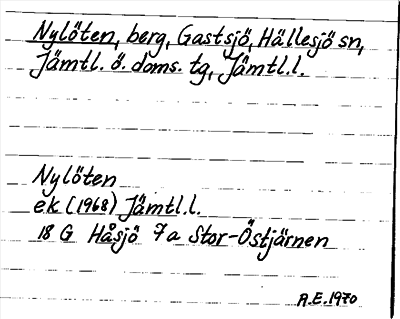 Nylöten, berg, Gastsjö, Hällesjö sn,
Jämtl. ö. doms. tg, Jämtl.l.
Nylöten
ek (1968) Jämtl.l.
18 G Håsjö 7a Stor-Östjärnen
A.E.1970